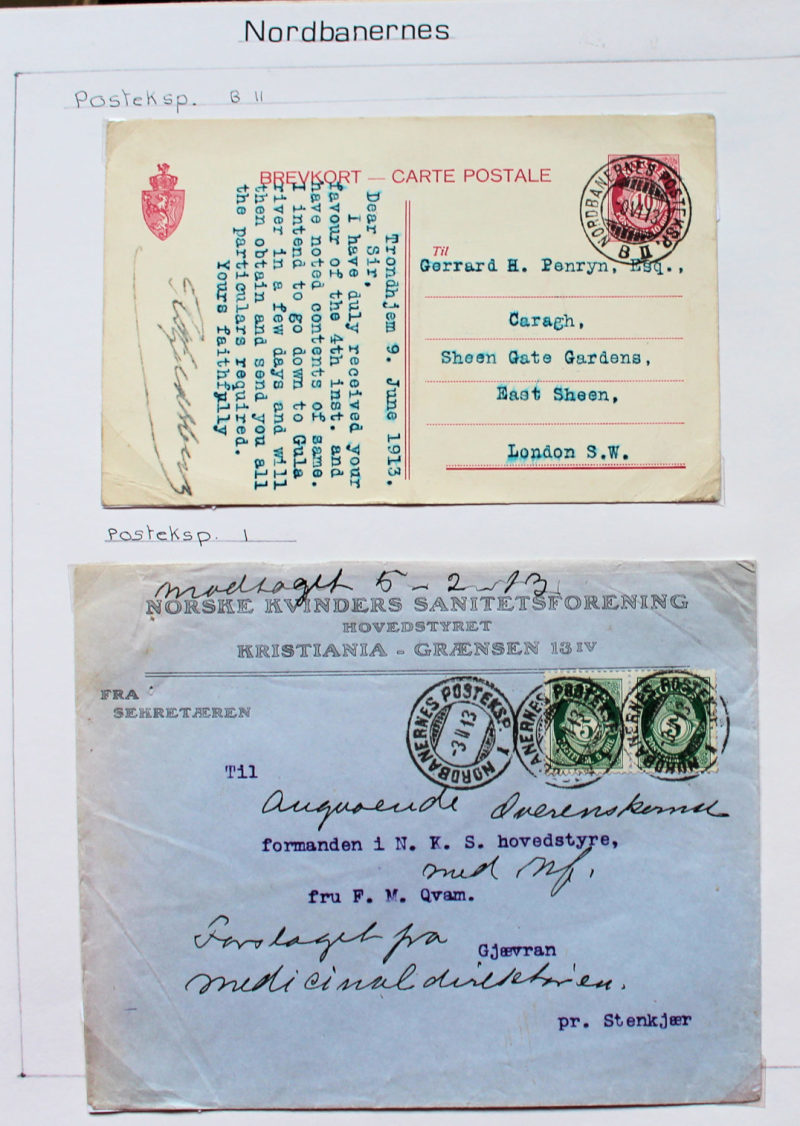 Nordbanernes
Posteksp. B II
BREVKORT — CARTE POSTALE
NORDBANERNES POSTEKSP. B II
VI 13
10
Til
Gerrard H. Penryn, Esq.,
Caragh,
Sheen Gate Gardens,
East Sheen,
London S.W.
Trondhjem 9. June 1913.
Dear Sir,
I have duly received your
favour of the 4th inst. and
have noted contents of same.
I intend to go down to Gula
river in a few days and will
then obtain and send you all
the particulars required.
Yours faithfully
Posteksp. I
modtaget 5-2-13
NORSKE KVINDERS SANITETSFORENING
HOVEDSTYRET
KRISTIANIA - GRÆNSEN 13 IV
FRA
SEKRETÆREN
NORDBANERNES POSTEKSP. I
-3 II 13
NORDBANERNES POSTEKSP. I
5
NORDBANERNES POSTEKSP. I
5
Til
Angaaende Overenskomst
formanden i N. K. S. hovedstyre,
med Nf.
fru F. M. Qvam.
Forslaget fra
Gjævran
medicinaldirektøren.
pr. Stenkjær